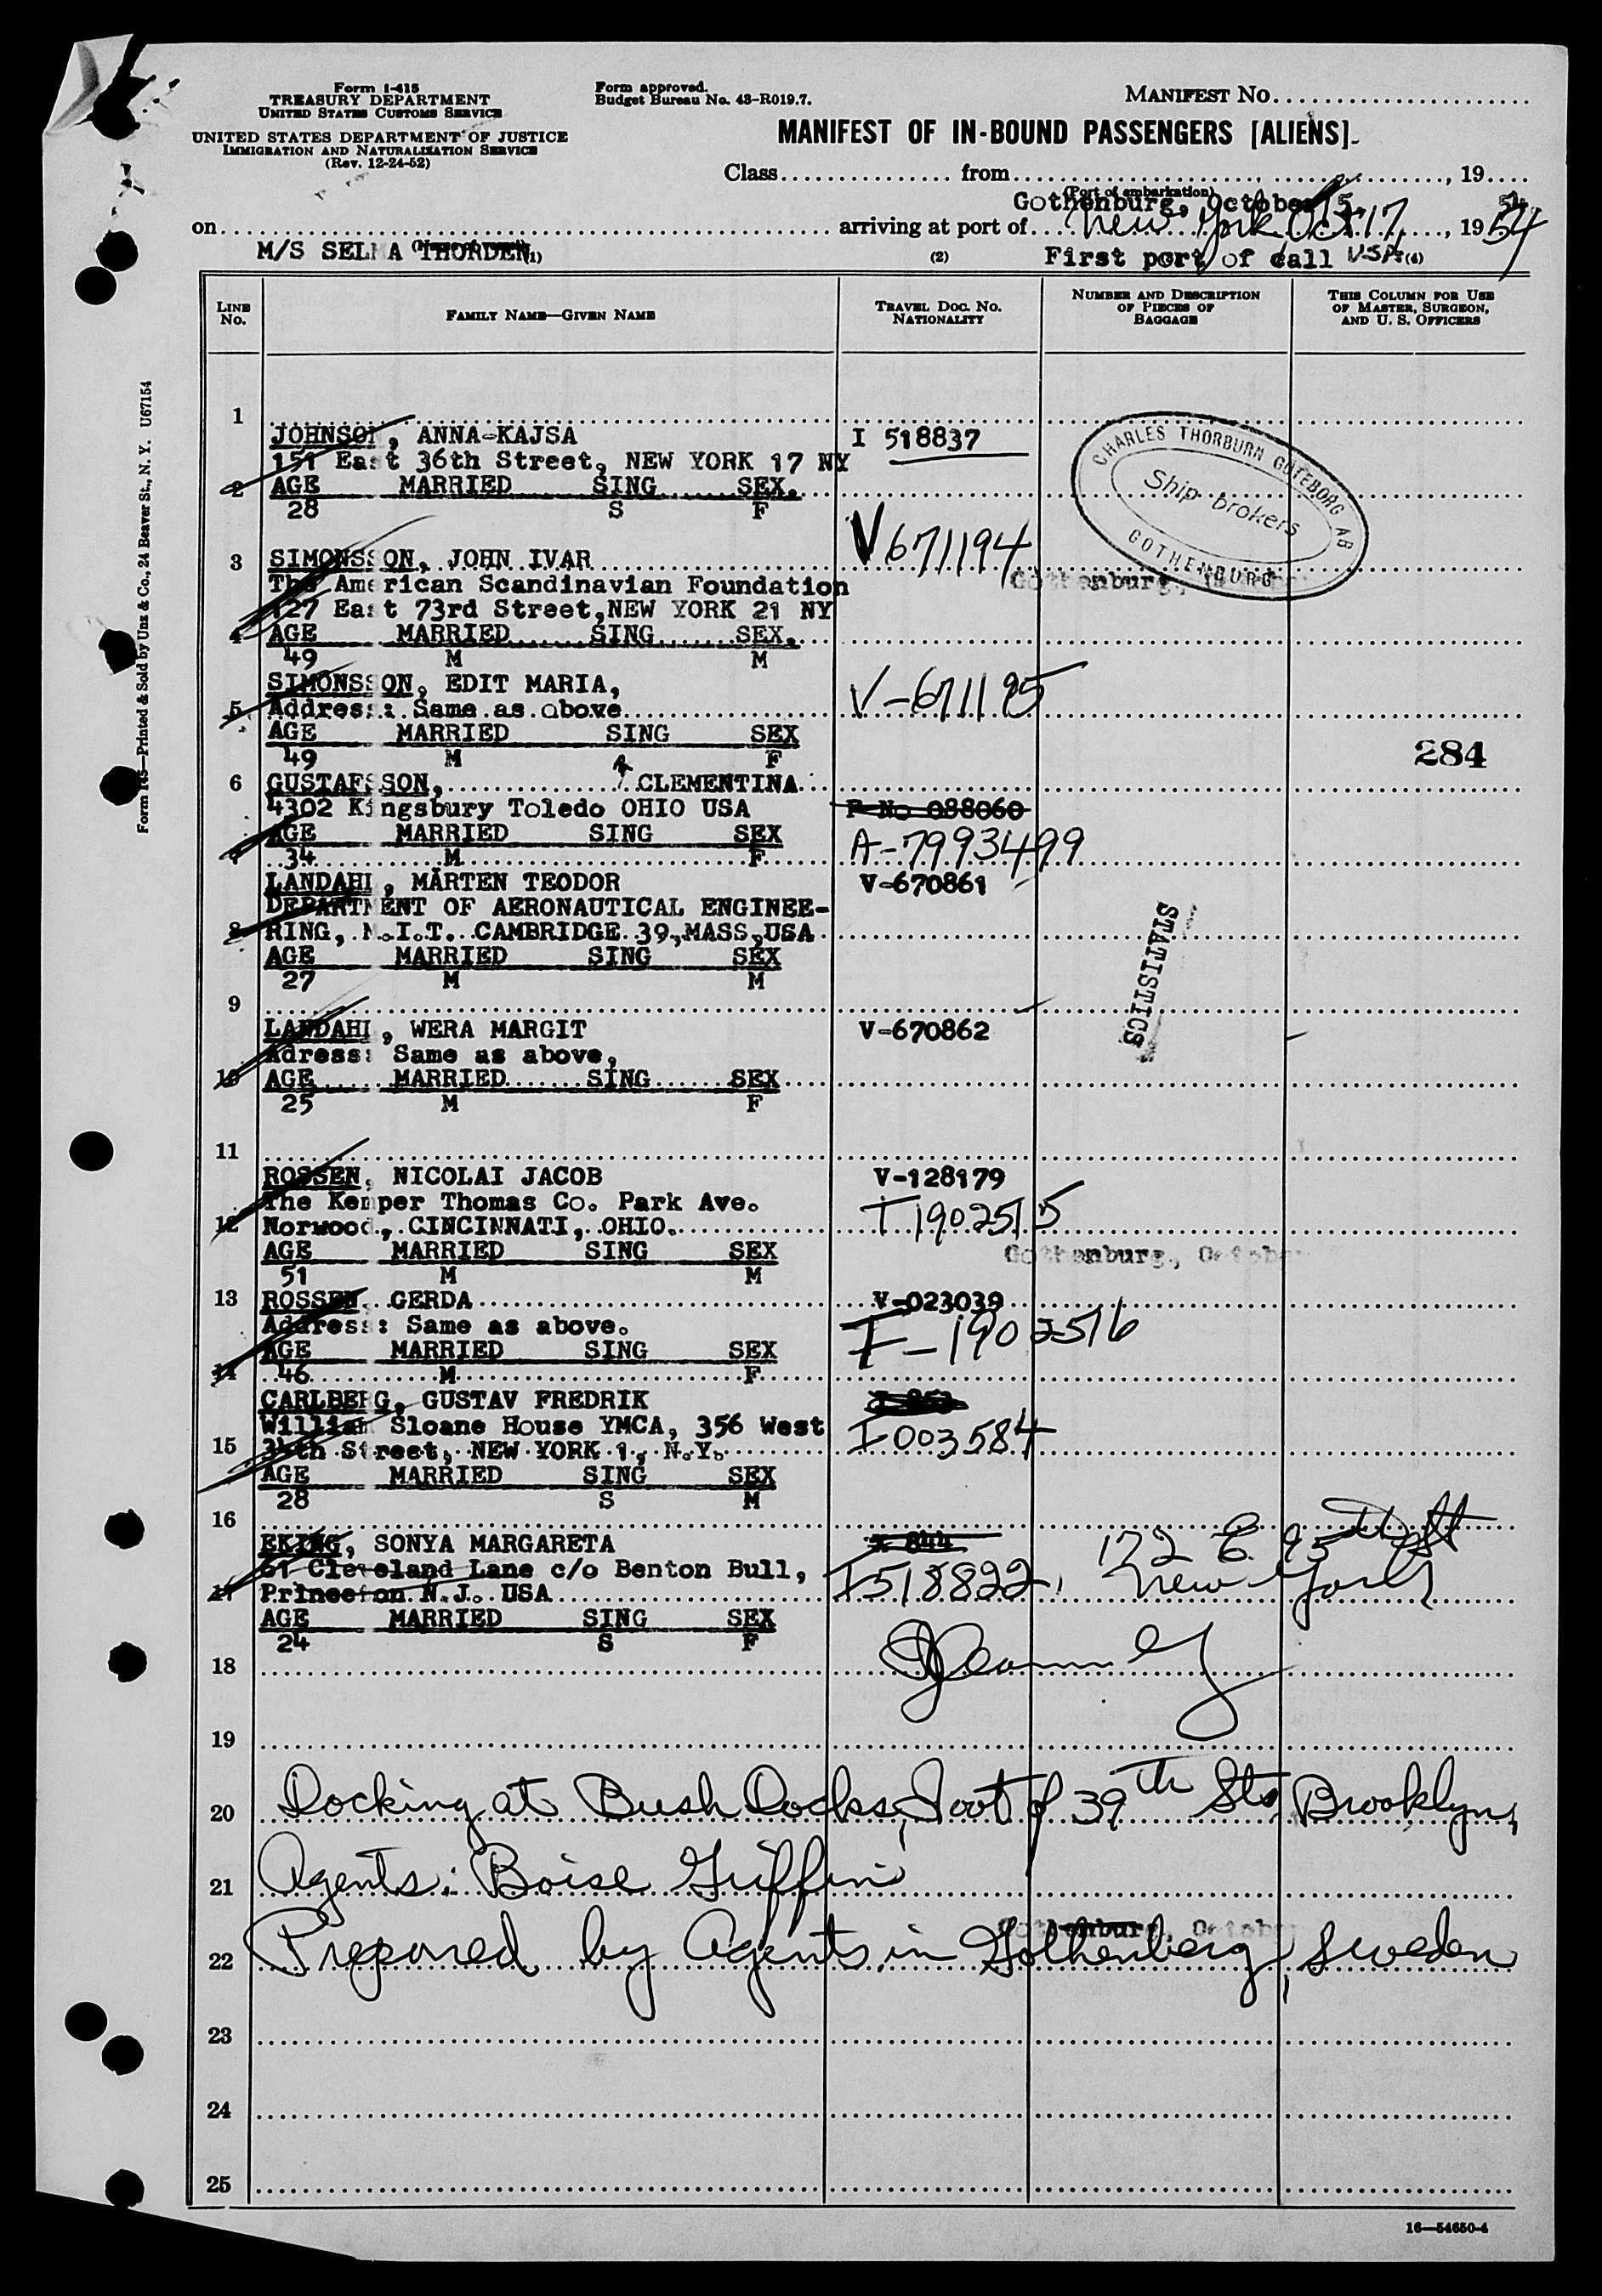 Form I-415
TREASURY DEPARTMENT
UNITED STATES CUSTOMS SERVICE
UNITED STATES DEPARTMENT OF JUSTICE
IMMIGRATION AND NATURALIZATION SERVICE
(Rev. 12-24-52)
Form approved.
Budget Bureau No. 43-R019.7.
MANIFEST NO.
MANIFEST OF IN-BOUND PASSENGERS [ALIENS]
Class from , 19
(Port of embarkation)
Gothenburg, October 15, 54
on arriving at port of New York Oct 17, 1954
M/S SELMA THORDEN (1) (2) First port of call U.S.A. (4)
LINE No.
FAMILY NAME—GIVEN NAME
TRAVEL DOC. NO. NATIONALITY
NUMBER AND DESCRIPTION OF PIECES OF BAGGAGE
THIS COLUMN FOR USE OF MASTER, SURGEON, AND U. S. OFFICERS
Form I-415—Printed & Sold by Unz & Co., 24 Beaver St., N. Y. U67154
1
JOHNSON, ANNA-KAJSA I 518837
151 East 36th Street, NEW YORK 17 NY
2 AGE MARRIED SING SEX.
28 S F
CHARLES THORBURN GÖTEBORG AB
Ship brokers
GOTHENBURG
V671194
3 SIMONSSON, JOHN IVAR
The American Scandinavian Foundation Gothenburg,
127 East 73rd Street, NEW YORK 21 NY
4 AGE MARRIED SING SEX.
49 M M
SIMONSSON, EDIT MARIA, V-671195
5 Address: Same as above
AGE MARRIED SING SEX
49 M F 284
6 GUSTAFSSON, CLEMENTINA
4302 Kingsbury Toledo OHIO USA P No 088060
AGE MARRIED SING SEX A-7993499
7 34 M F
LANDAHL, MÅRTEN TEODOR V-670861
DEPARTMENT OF AERONAUTICAL ENGINEE-
8 RING, M.I.T. CAMBRIDGE 39, MASS, USA
AGE MARRIED SING SEX
27 M M
STATISTICS
9
LANDAHL, WERA MARGIT V-670862
Adress: Same as above,
10 AGE MARRIED SING SEX
25 M F
11
ROSSEN, NICOLAI JACOB V-128179
The Kemper Thomas Co. Park Ave. T1902515
12 Norwood, CINCINNATI, OHIO.
AGE MARRIED SING SEX Gothenburg, October
51 M M
13 ROSSEN GERDA V-023039
Address: Same as above. T-1902516
AGE MARRIED SING SEX
14 46 M F
CARLBERG, GUSTAV FREDRIK
William Sloane House YMCA, 356 West I003584
15 34th Street, NEW YORK 1, N.Y.
AGE MARRIED SING SEX
28 S M
16
EKING, SONYA MARGARETA 172 E. 95th St
61 Cleveland Lane c/o Benton Bull, I518822 New York
17 Princeton N.J. USA
AGE MARRIED SING SEX
24 S F
18
19
20 Docking at Bush Docks, Foot of 39th St, Brooklyn,
21 Agents: Boise Griffin
Gothenburg, October
22 Prepared by Agents in Gothenberg, Sweden
23
24
25
16—54650-4